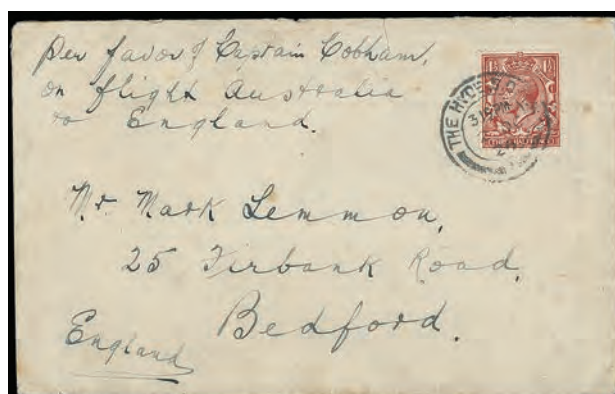 Per favor of Captain Cobham,
on flight Australia
to England.
THE HYDE
Mr. Mark Lemmon,
25 Firbank Road,
Bedford.
England